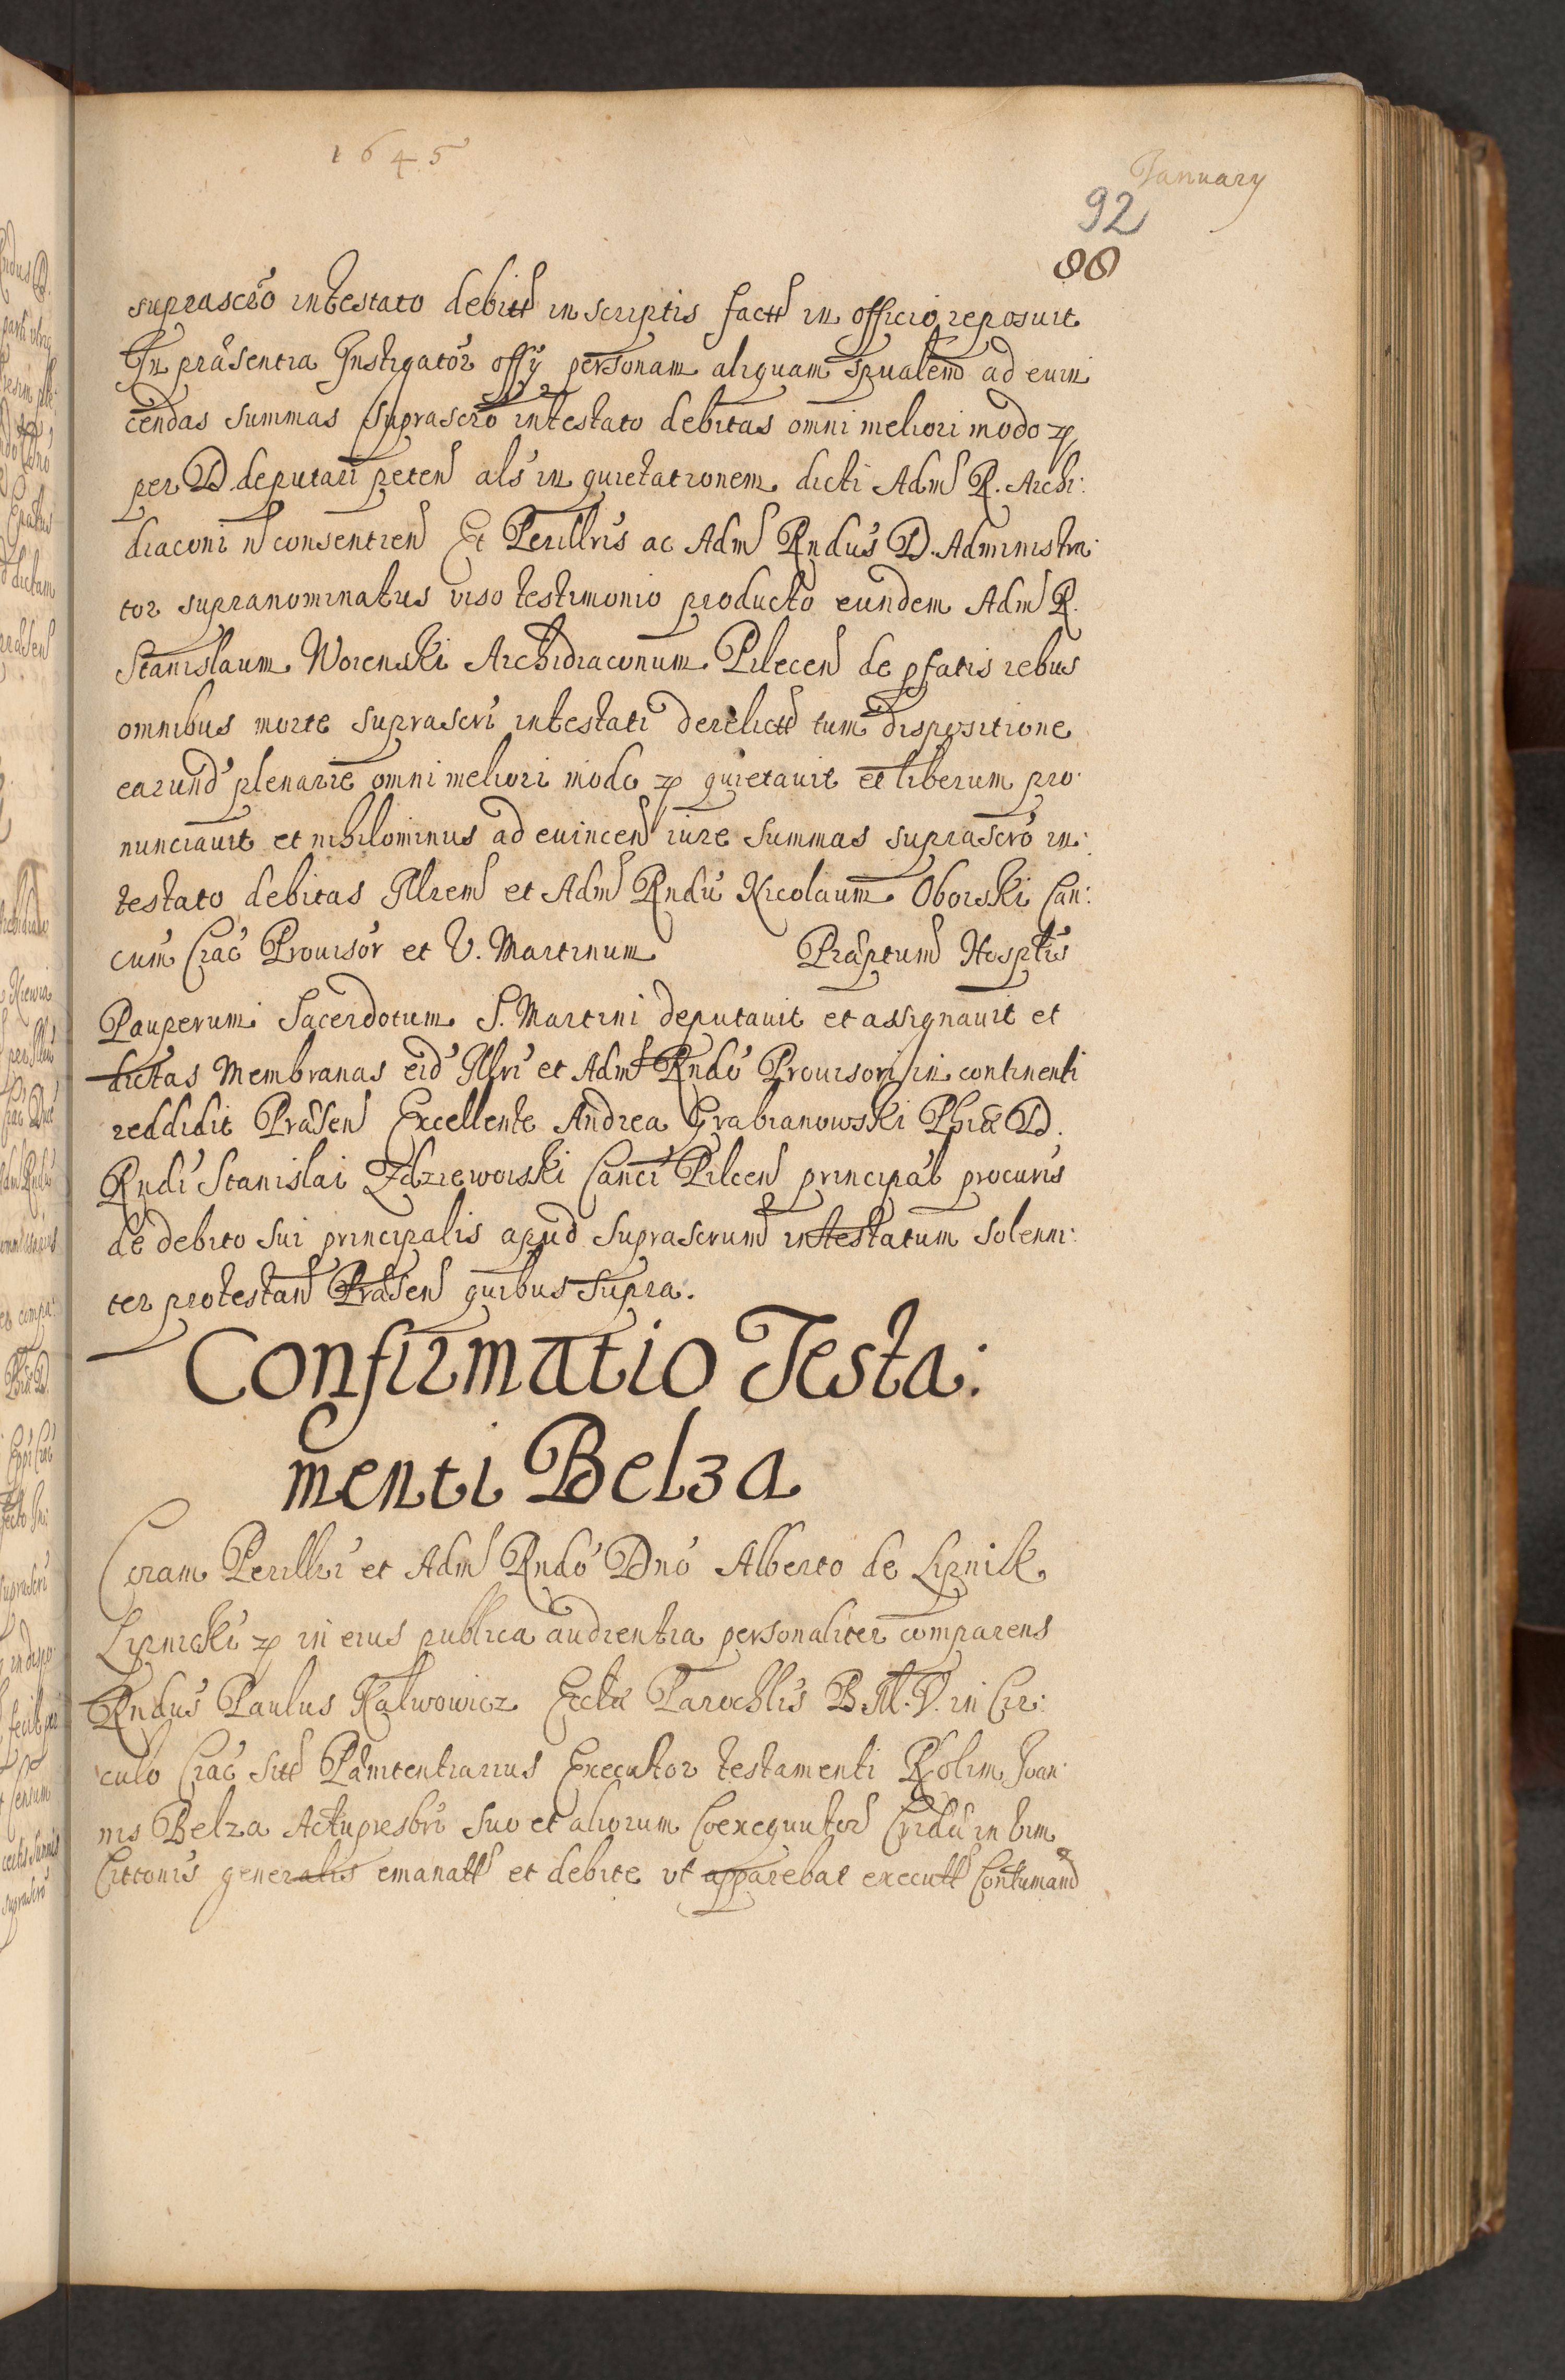 1645
January
92
88
suprascro intestato debitt in scriptis factt in officio reposuit
In præsentia Instigator offÿ personam aliquam spualem ad euin
cendas summas suprascro intestato debitas omni meliori modo
per D. deputari peten als in quietationem dicti Adm R. Archi:
diaconi n consentien Et Perillris ac Adm Rndus D. Administra:
tor supranominatus viso testimonio producto eundem Adm R.
Stanislaum Worenski Archidiaconum Pilecen de pfatis rebus
omnibus morte suprascri intestati derelictt tum dispositione
earund plenarie omni meliori modo quietauit et liberum pro:
nunciauit et nihilominus ad euincen iure summas suprascro in:
testato debitas Illrem et Adm Rndu Nicolaum Oborski Can:
cum Crac Prouisor et V. Martinum Præptum Hosptis
Pauperum Sacerdotum S. Martini deputauit et assignauit et
dictas Membranas eid Illri et Adm Rndo Prouisori in continenti
reddidit Præsen Excellente Andrea Grabianowski Phiæ D.
Rndi Stanislai Zdzieworski Canci Pilcen principal procuris
de debito sui principalis apud suprascrum intestatum solenni:
ter protestan Præsen quibus supra.
Confirmatio Testa:
menti Belza
Coram Perillri et Adm Rndo Dno Alberto de Lipnik
Lipnicki in eius publica audientia personaliter comparens
Rndus Paulus Kalwowicz Eccta Parochlis B.M.V. in Cir:
culo Crac sitt Pænitentiarius Executor testamenti R olim Joan:
nis Belza Actupresbri suo et aliorum Coexequutor in vim
Cittonis generalis emanatt et debite vt apparebat executt Contumand